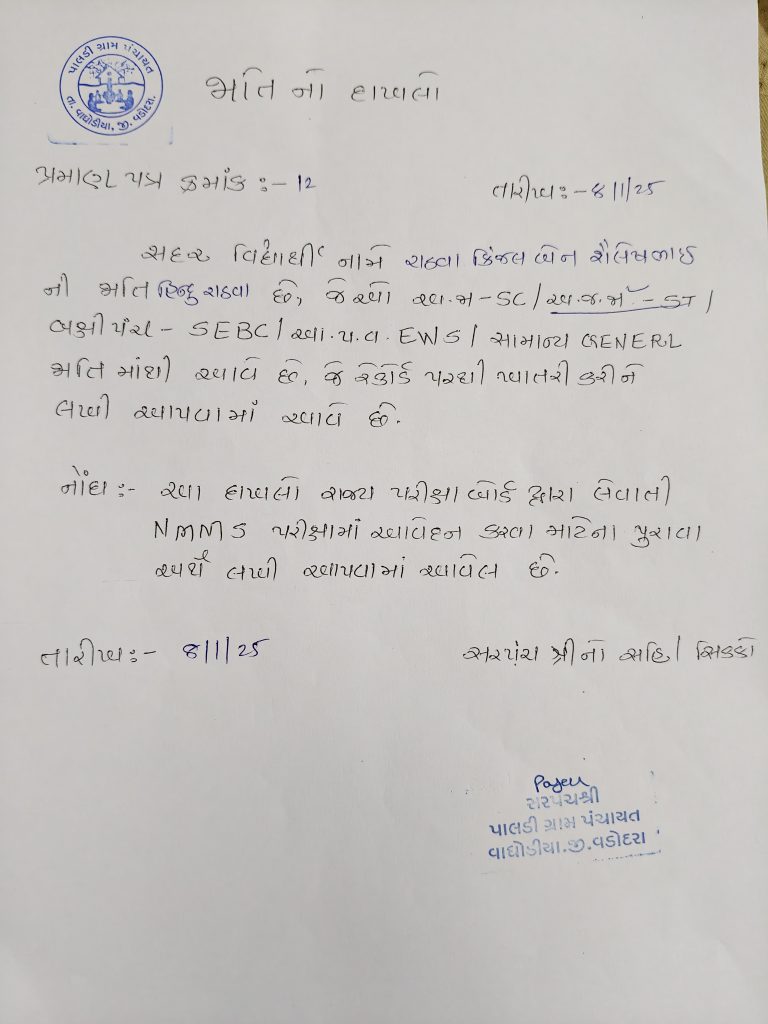 પાલડી ગ્રામ પંચાયત
તા. વાઘોડીયા, જી. વડોદરા.
જાતિ નો દાખલો
પ્રમાણ પત્ર ક્રમાંક :- 12
તારીખ :- 8/1/25
સદર વિદ્યાર્થી નામે રાઠવા કિંજલ બેન શૈલેષભાઈ
ની જાતિ હિન્દુ રાઠવા છે, જેઓ અ.જા - SC / અ.જ.જા - ST /
બક્ષીપંચ - SEBC / આ.પ.વ. EWS / સામાન્ય GENERL
જાતિ માંથી આવે છે, જે રેકોર્ડ પરથી ખાતરી કરીને
લખી આપવામાં આવે છે.
નોંધ :- આ દાખલો રાજ્ય પરીક્ષા બોર્ડ દ્વારા લેવાતી
NMMS પરીક્ષામાં આવેદન કરવા માટેના પુરાવા
અર્થે લખી આપવામાં આવેલ છે.
તારીખ :- 8/1/25
સરપંચ શ્રીની સહિ / સિક્કો
સરપંચશ્રી
પાલડી ગ્રામ પંચાયત
વાઘોડીયા.જી.વડોદરા